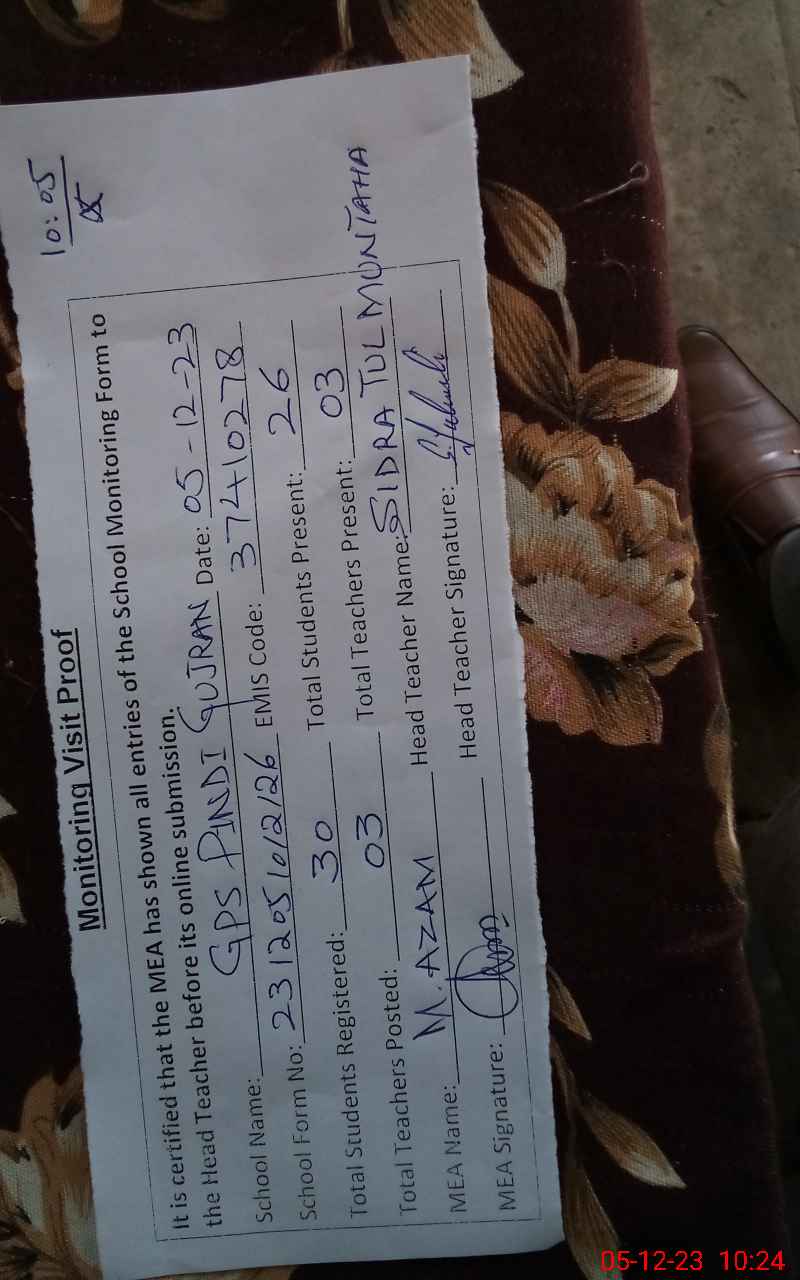 10:05
Monitoring Visit Proof
It is certified that the MEA has shown all entries of the School Monitoring Form to
the Head Teacher before its online submission.
School Name: GPS PINDI GUJRAN Date: 05-12-23
School Form No: 2312051012126 EMIS Code: 37410278
Total Students Registered: 30 Total Students Present: 26
Total Teachers Posted: 03 Total Teachers Present: 03
MEA Name: M. AZAM Head Teacher Name: SIDRA TUL MUNTAHA
MEA Signature: Head Teacher Signature:
05-12-23 10:24